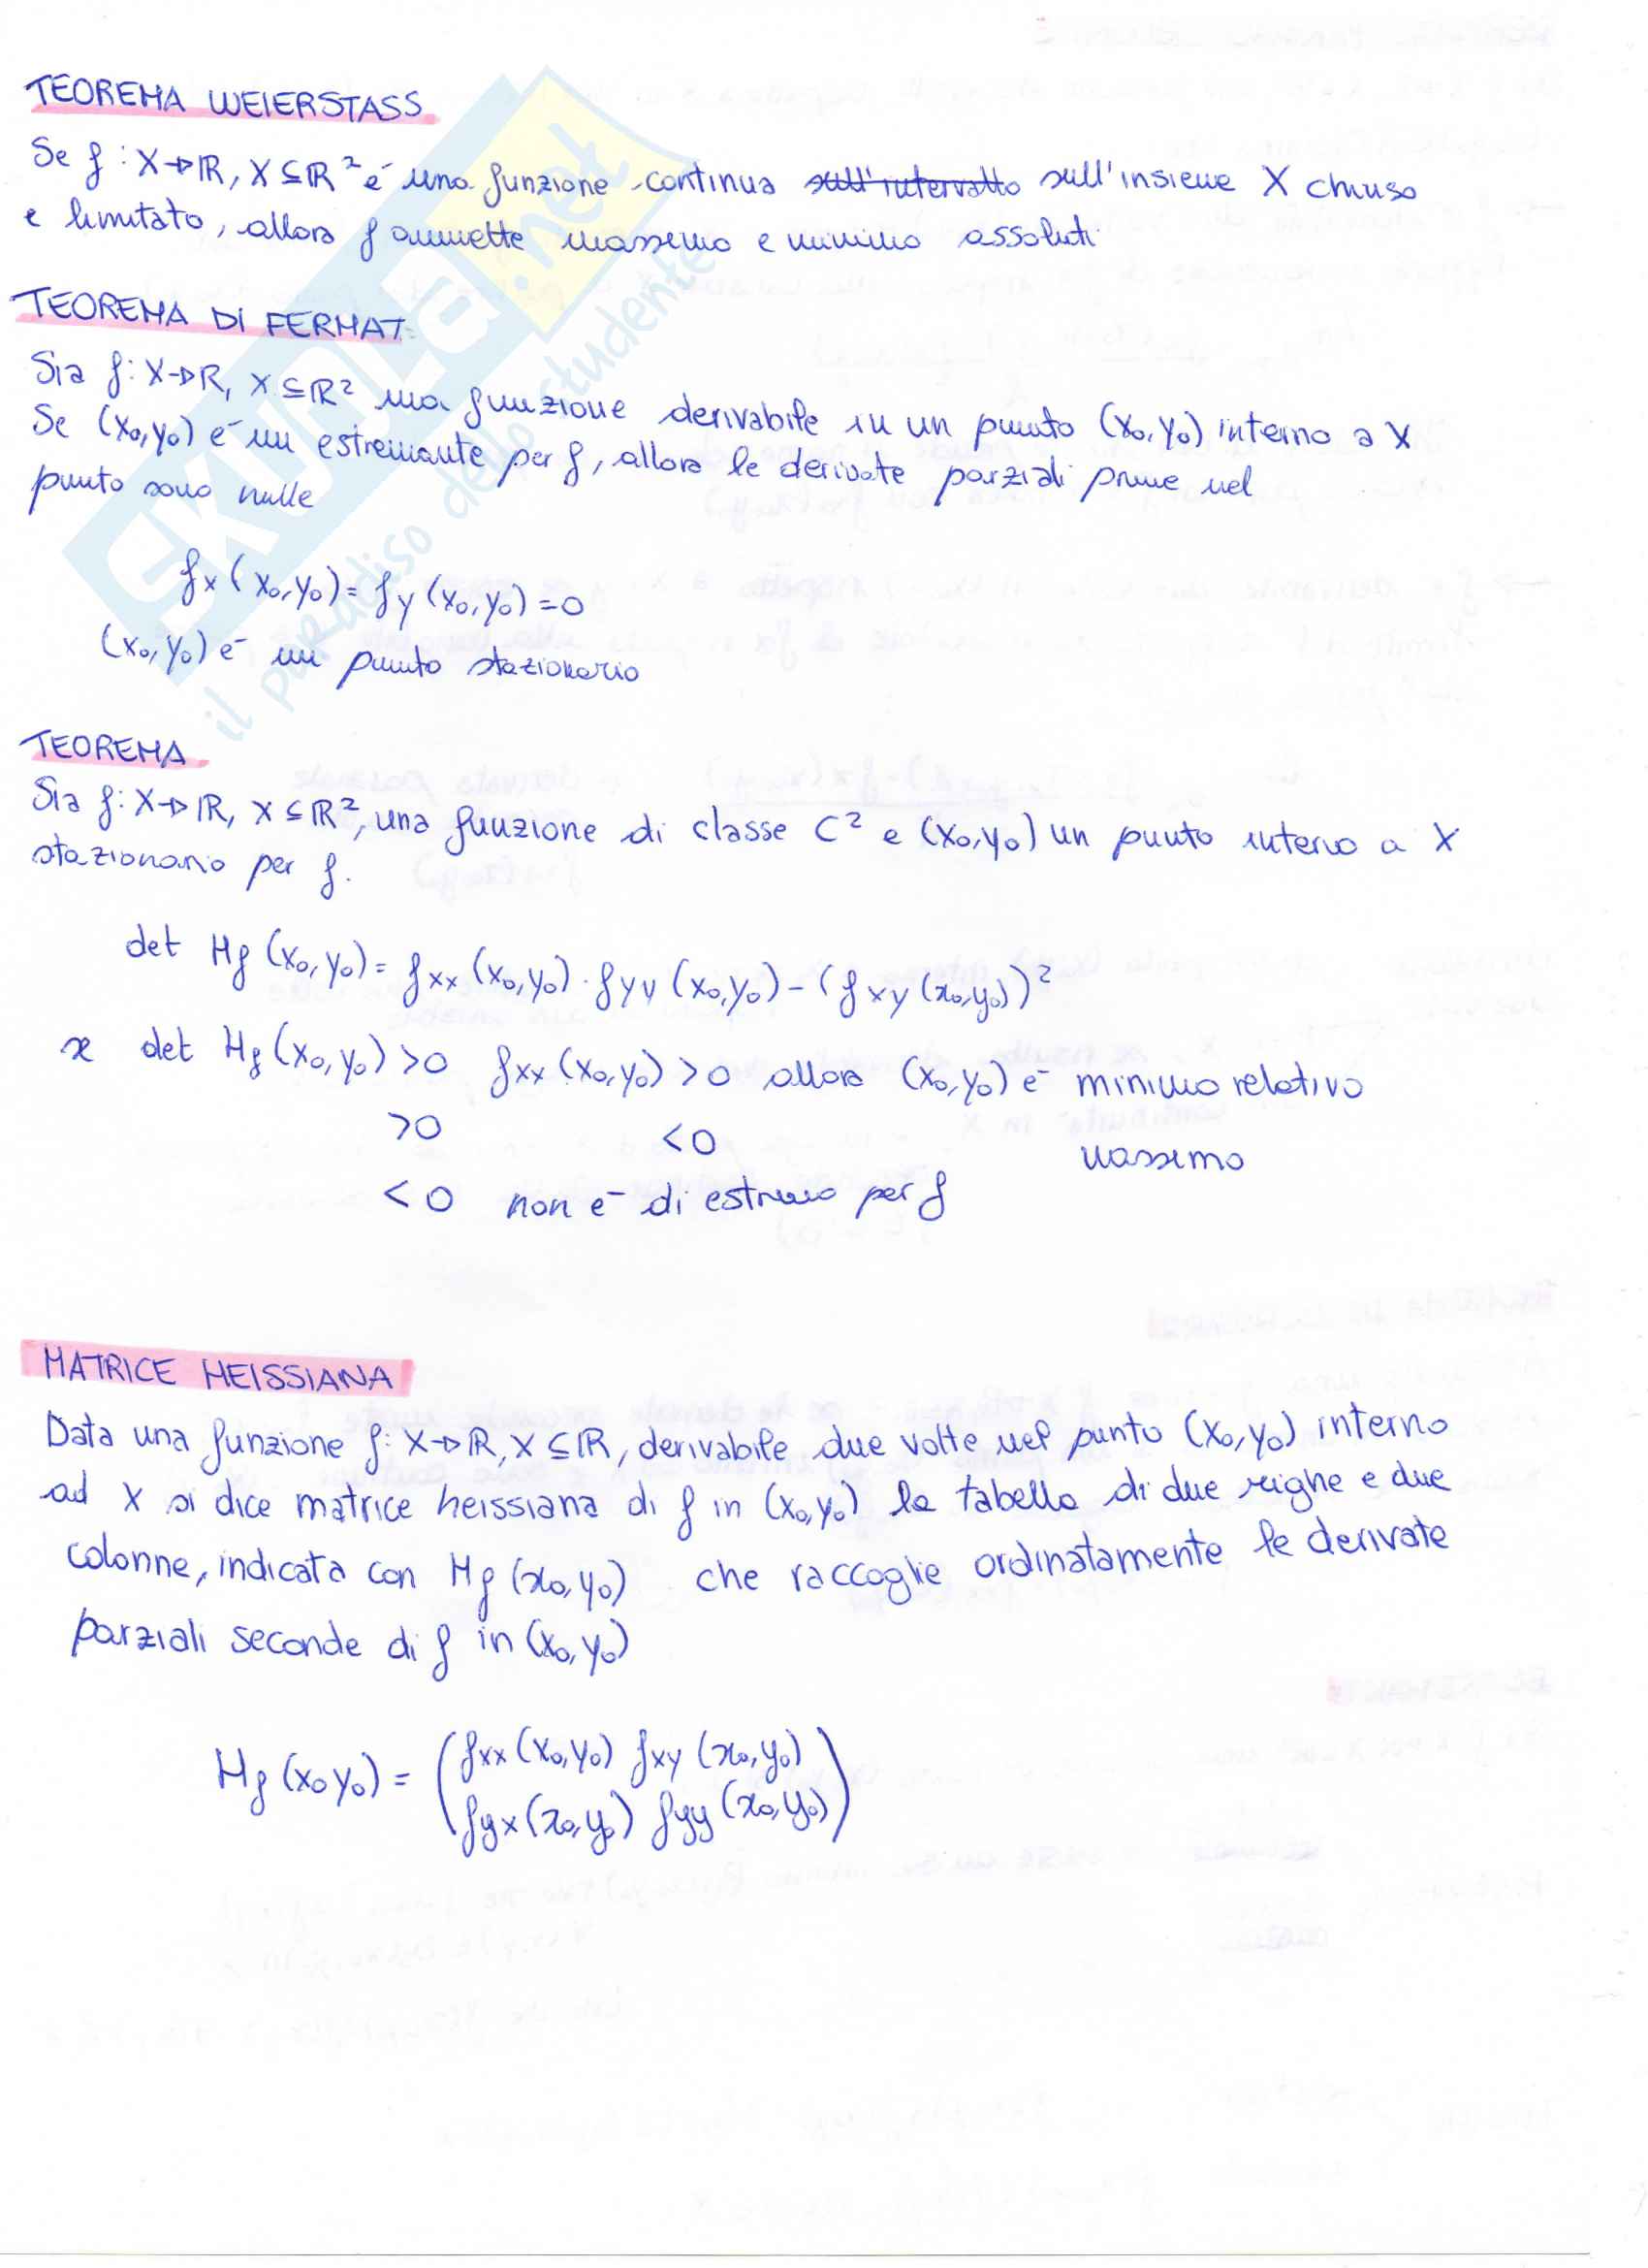 TEOREMA WEIERSTASS
Se f: X→ℝ, X⊆ℝ² é una funzione continua sull'intervallo sull'insieme X chiuso
e limitato, allora f ammette massimo e minimo assoluti.
TEOREMA DI FERMAT
Sia f: X→ℝ, X⊆ℝ² una funzione derivabile in un punto (x₀,y₀) interno a X
Se (x₀,y₀) é un estremante per f, allora le derivate parziali prime nel
punto sono nulle
fx(x₀,y₀)=fy(x₀,y₀)=0
(x₀,y₀) é un punto stazionario
TEOREMA
Sia f: X→ℝ, X⊆ℝ², una funzione di classe C² e (x₀,y₀) un punto interno a X
stazionario per f.
det Hf(x₀,y₀)= fxx(x₀,y₀)·fyy(x₀,y₀)-(fxy(x₀,y₀))²
se det Hf(x₀,y₀)>0 fxx(x₀,y₀)>0 allora (x₀,y₀) é minimo relativo
>0 <0 massimo
<0 non é di estremo per f
MATRICE HEISSIANA
Data una funzione f: X→ℝ, X⊆ℝ, derivabile due volte nel punto (x₀,y₀) interno
ad X si dice matrice heissiana di f in (x₀,y₀) la tabella di due reighe e due
colonne, indicata con Hf(x₀,y₀) che raccoglie ordinatamente le derivate
parziali seconde di f in (x₀,y₀)
Hf(x₀y₀) = (fxx(x₀,y₀) fxy(x₀,y₀)
fyx(x₀,y₀) fyy(x₀,y₀))
SKUOLa.net
il paradiso dello studente